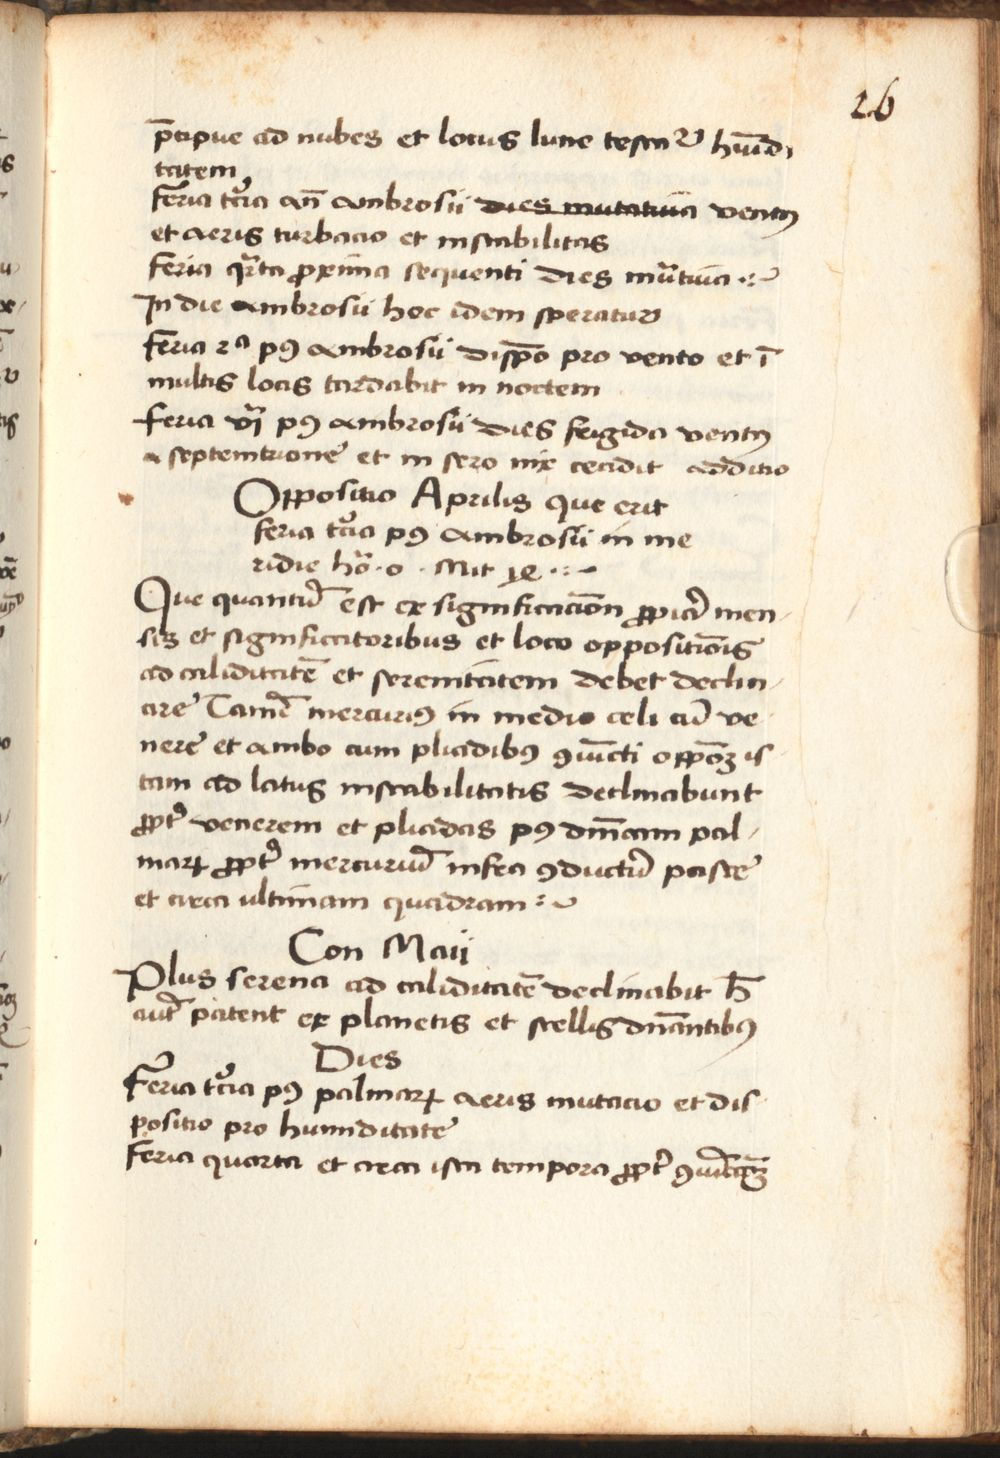 26
p̄cipue ad nubes et locus lune testat̄ur hūidi
tatem
Feria tc̄ia an̄ Ambrosii dies mutatiua ventꝯ
et aeris turbacio et instabilitas
Feria qr̄ta proxima sequenti dies mūtiua
In die Ambrosii hoc idem speratur
Feria 2ª pꝯ Ambrosii disp̄o pro vento et ī
multis locis tardabit in noctem
Feria vj pꝯ Ambrosii dies frigida ventꝯ
a septemtrione et in sero nix cecidit additio
Oppositio Aprilis que erit
feria tc̄ia pꝯ Ambrosii in me
ridie ho͛ 0 Mit
Que quantū est ex significacion̄ men
siū et significatoribus et loco oppositiōis
ad caliditatē et serenitatem debet declin
are Tamē mercuriꝯ in medio celi cū ve
nere et ambo cum pliadibꝯ ꝯiūcti is
tam ad latus instabilitatis declinabunt
ꝓpt̄ venerem et pliadas pꝯ dm̄cam pal
marꝝ ꝓpt̄ mercuriū infra ꝯductū pasce
et circa ultimam quadram
Con Maii
Plus serena ad caliditatē declinabit h̄
aut̄ patent ex planetis et stellis dn̄antibꝯ
Dies
Feria tc̄ia pꝯ palmarꝝ aeris mutacio et dis
positio pro humiditate
Feria quarta et circa ista tempora ꝓpt̄